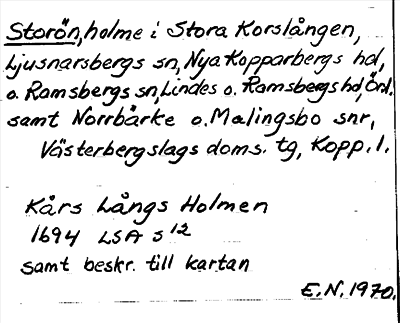 Storön, holme i Stora Korslången,
Ljusnarsbergs sn, Nya Kopparbergs hd,
o. Ramsbergs sn, Lindes o. Ramsbergs hd, Örl.
samt Norrbärke o. Malingsbo snr,
Västerbergslags doms. tg, Kopp. l.
Kårs Långs Holmen
1694 LSA S 12
samt beskr. till kartan
E.N. 1970.